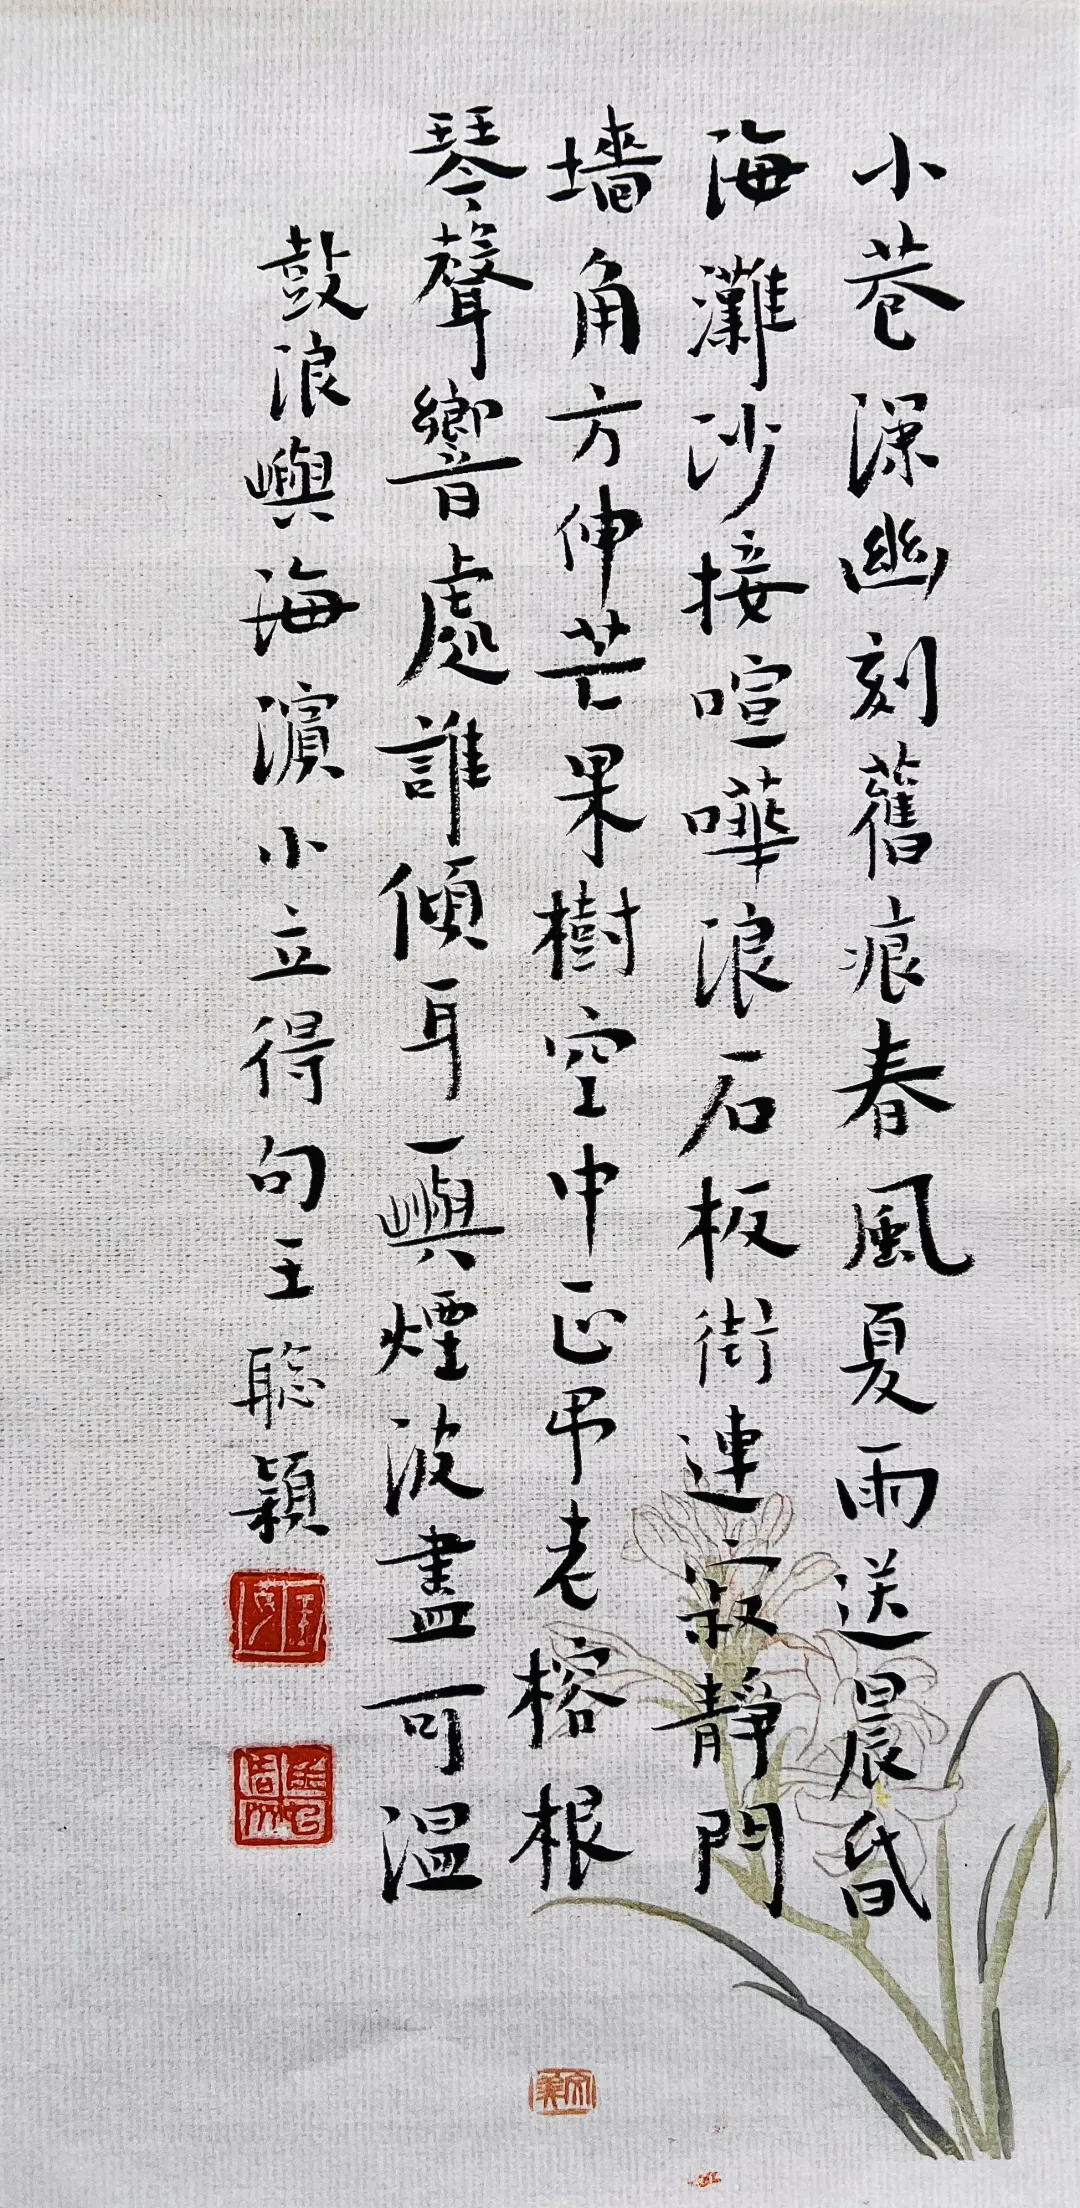 小巷深幽刻舊痕春風夏雨送晨昏
海灘沙接喧嘩浪石板街連寂靜門
墻角方伸芒果樹空中正吊老榕根
琴聲響處誰傾耳一嶼煙波盡可温
鼓浪嶼海濱小立得句王聰穎